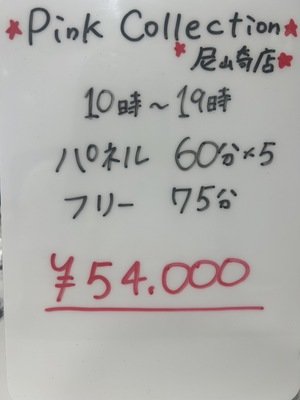 Pink Collection
尼崎店
10時～19時
パネル 60分×5
フリー 75分
¥54.000